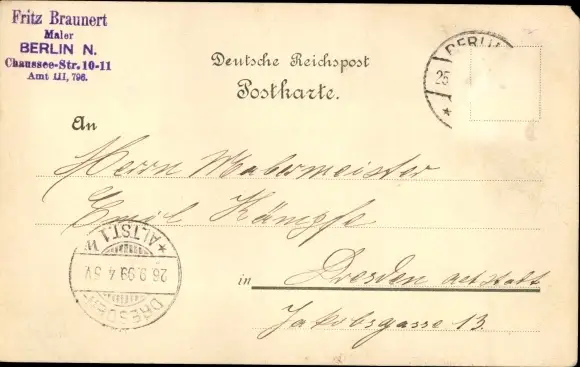 Fritz Braunert
Maler
BERLIN N.
Chaussee-Str. 10-11
Amt III, 796.
Deutsche Reichspost
Postkarte.
BERLIN
25
*
An
Herrn Malermeister
Emil Kämpfe
in Dresden Altstadt
Jakobsgasse 13.
DRESDEN-
26.9.99 4-5V.
* ALTST. 1 W